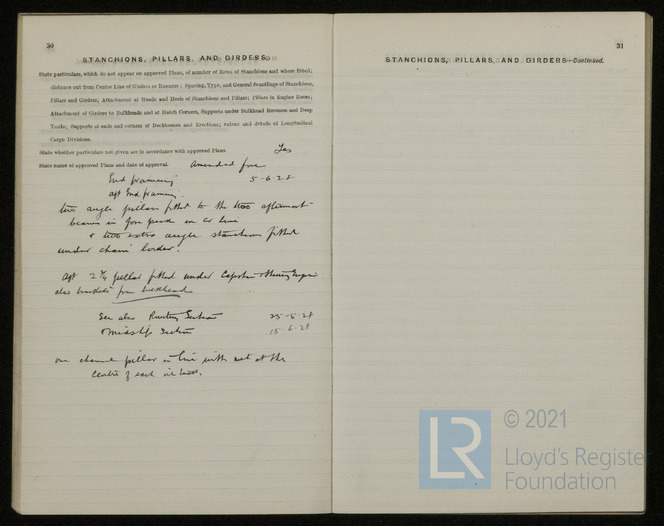 30
STANCHIONS, PILLARS, AND GIRDERS.
State particulars, which do not appear on approved Plans, of number of Rows of Stanchions and where fitted;
distance out from Centre Line of Girders or Runners; Spacing, Type, and General Scantlings of Stanchions,
Pillars and Girders; Attachment at Heads and Heels of Stanchions and Pillars; Pillars in Engine Room;
Attachment of Girders to Bulkheads and at Hatch Corners, Supports under Bulkhead Recesses and Deep
Tanks; Supports at ends and corners of Deckhouses and Erections; extent and details of Longitudinal
Cargo Divisions.
State whether particulars not given are in accordance with approved Plans. Yes
State name of approved Plans and date of approval. Amended fore
End framing 5-6-28
aft End framing.
two angle pillars fitted to the two aftermost
beams in fore peak in Cr line
& two extra angle stanchions fitted
under chain locker.
Aft 2 3/4 pillar fitted under Capstan
also brackets from bulkhead
See also Section 25-5-28
& Midship Section 15-6-28
one channel pillar in line with web at the
centre of each oil
31
STANCHIONS, PILLARS, AND GIRDERS—Continued.
LR
© 2021
Lloyd's Register
Foundation